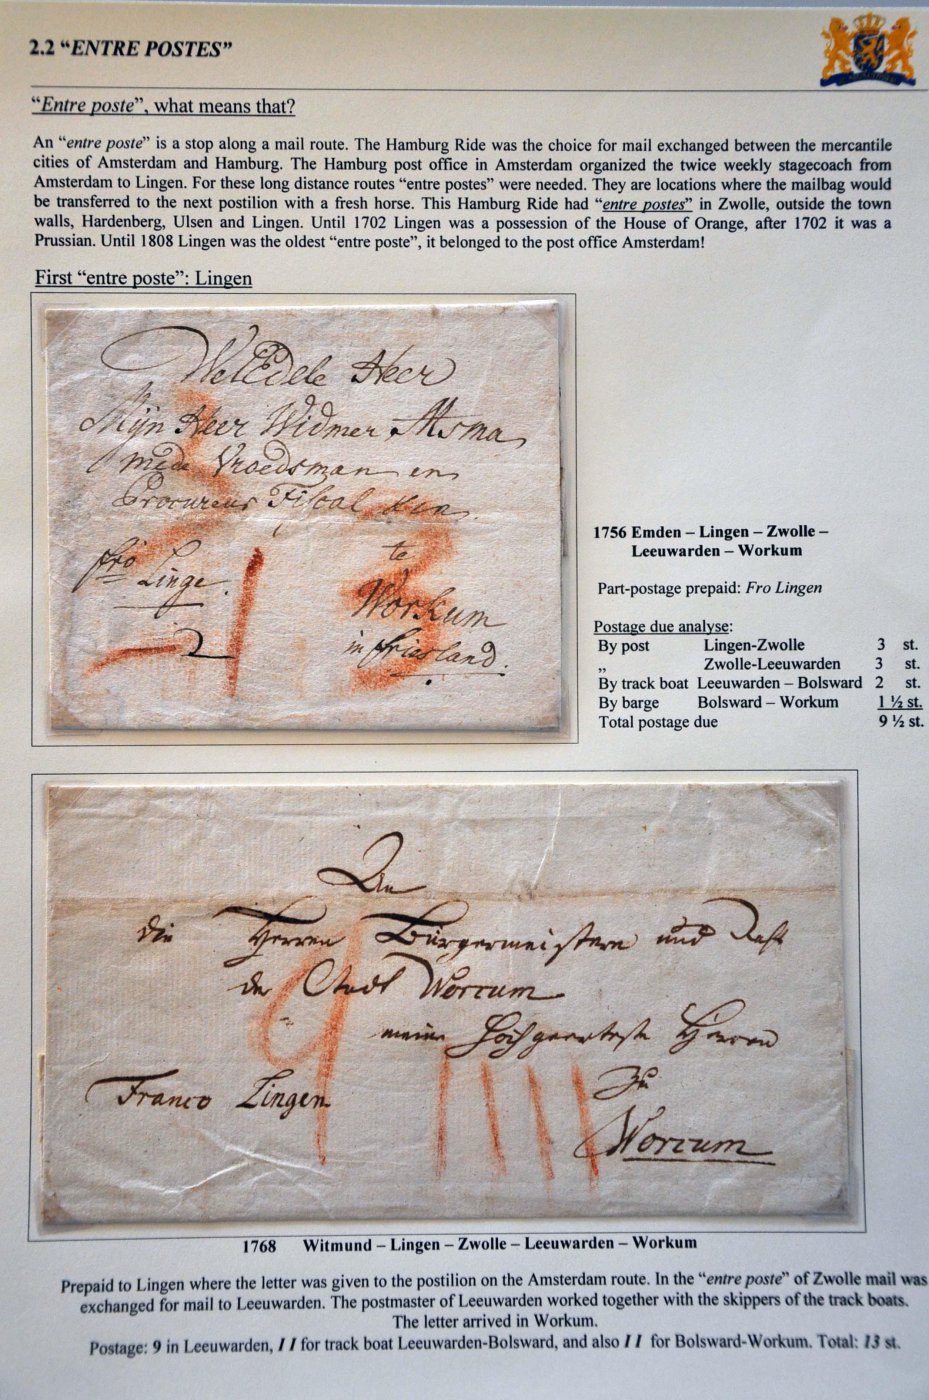 2.2 “ENTRE POSTES”
“Entre poste”, what means that?
An “entre poste” is a stop along a mail route. The Hamburg Ride was the choice for mail exchanged between the mercantile
cities of Amsterdam and Hamburg. The Hamburg post office in Amsterdam organized the twice weekly stagecoach from
Amsterdam to Lingen. For these long distance routes “entre postes” were needed. They are locations where the mailbag would
be transferred to the next postilion with a fresh horse. This Hamburg Ride had “entre postes” in Zwolle, outside the town
walls, Hardenberg, Ulsen and Lingen. Until 1702 Lingen was a possession of the House of Orange, after 1702 it was a
Prussian. Until 1808 Lingen was the oldest “entre poste”, it belonged to the post office Amsterdam!
First “entre poste”: Lingen
WelEdele Heer
Mijn Heer Widmer Atsma
mede Vroedsman en
Procureur Fiscal
te
fro Linge
Workum
in friesland.
2
3
3
1756 Emden – Lingen – Zwolle –
Leeuwarden – Workum
Part-postage prepaid: Fro Lingen
Postage due analyse:
By post Lingen-Zwolle 3 st.
„ Zwolle-Leeuwarden 3 st.
By track boat Leeuwarden – Bolsward 2 st.
By barge Bolsward – Workum 1 ½ st.
Total postage due 9 ½ st.
An
die Herren Bürgermeistern und Raht
der Stadt Worcum
meine Hochgeerteste Herren
9
Franco Lingen
Zu
Worcum
1768 Witmund – Lingen – Zwolle – Leeuwarden – Workum
Prepaid to Lingen where the letter was given to the postilion on the Amsterdam route. In the “entre poste” of Zwolle mail was
exchanged for mail to Leeuwarden. The postmaster of Leeuwarden worked together with the skippers of the track boats.
The letter arrived in Workum.
Postage: 9 in Leeuwarden, I I for track boat Leeuwarden-Bolsward, and also I I for Bolsward-Workum. Total: 13 st.